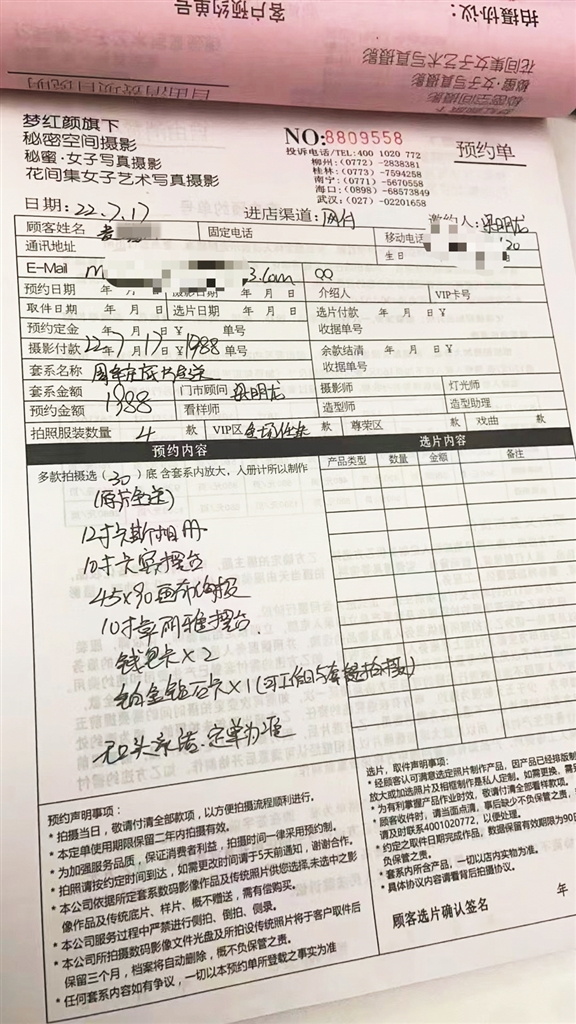 客户预约单号
拍摄协议：
花间集女子艺术写真摄影
秘蜜·女子写真摄影
秘密空间摄影
梦红颜旗下
秘密空间摄影
秘蜜·女子写真摄影
花间集女子艺术写真摄影
NO:8809558
预约单
投诉电话/TEL:400 1020 772
柳州:(0772)-2838381
桂林:(0773)-7594258
南宁:(0771)-5670558
海口:(0898)-68573849
武汉:(027)-02201658
日期:22.7.17 进店渠道: 邀约人:梁明龙
顾客姓名 固定电话 移动电话
通讯地址 生日
E-Mail m 3.com QQ
预约日期 年 月 日 摄影日期 年 月 日 介绍人 VIP卡号
取件日期 年 月 日 选片日期 年 月 日 选片付款 年 月 日 ¥
预约定金 年 月 日 ¥ 单号 收据单号
摄影付款 22年7月17日¥1988 单号 余款结清 年 月 日 ¥
套系名称 周年庆 收据单号
套系金额 1988 门市顾问 梁明龙 摄影师 灯光师
预约金额 看样师 造型师 造型助理
拍照服装数量 4 款 VIP区 全场任选 款 尊荣区 款 戏曲 款
预约内容 选片内容
产品类型 数量 金额 备注
多款拍摄选(30)底 含套系内放大，入册计所以制作
(底片全送)
12寸卡斯相册
10寸卡宾摆台
45x90画布海报
10寸卓丽雅摆台
钱包卡×2
铂金钻石卡×1
无口头承诺.定单为准
预约声明事项：
* 拍摄当日，敬请付清全部款项，以方便拍摄流程顺利进行。
* 本定单使用期限保留二年内拍摄有效。
* 为加强服务品质，保证消费者利益，拍摄时间一律采用预约制。
* 拍照请按约定时间到达，如需更改时间请于5天前通知，谢谢合作。
* 本公司依据所定套系数码影像作品及传统照片供您选择,未选中之影
像作品及传统底片、样片、概不赠送，需有偿购买。
* 本公司服务过程中严禁进行侧拍、倒拍、侧录。
* 本公司所拍摄数码影像文件光盘及所拍设传统照片将于客户取件后
保留三个月，档案将自动删除，概不负保管之责。
* 任何套系内容如有争议，一切以本预约单所登载之事实为准
选片，取件声明事项：
* 经顾客认可满意选定照片制作产品，因产品已经排版制
放大或加选照片及相框制作是私人定制。如需更换，需
* 为有利掌握产品作业时效，敬请付清全部看样款项。
* 顾客收件时，请当面点清，事后缺少不负保管之责，
请及时联系4001020772，以便处理。
* 约定之取件日期完成作品，数据保留有效期限为90日
负保管之责。
* 套系内所含产品，一切以店内实物为准。
* 具体协议内容请看背后拍摄协议。
顾客选片确认签名 年